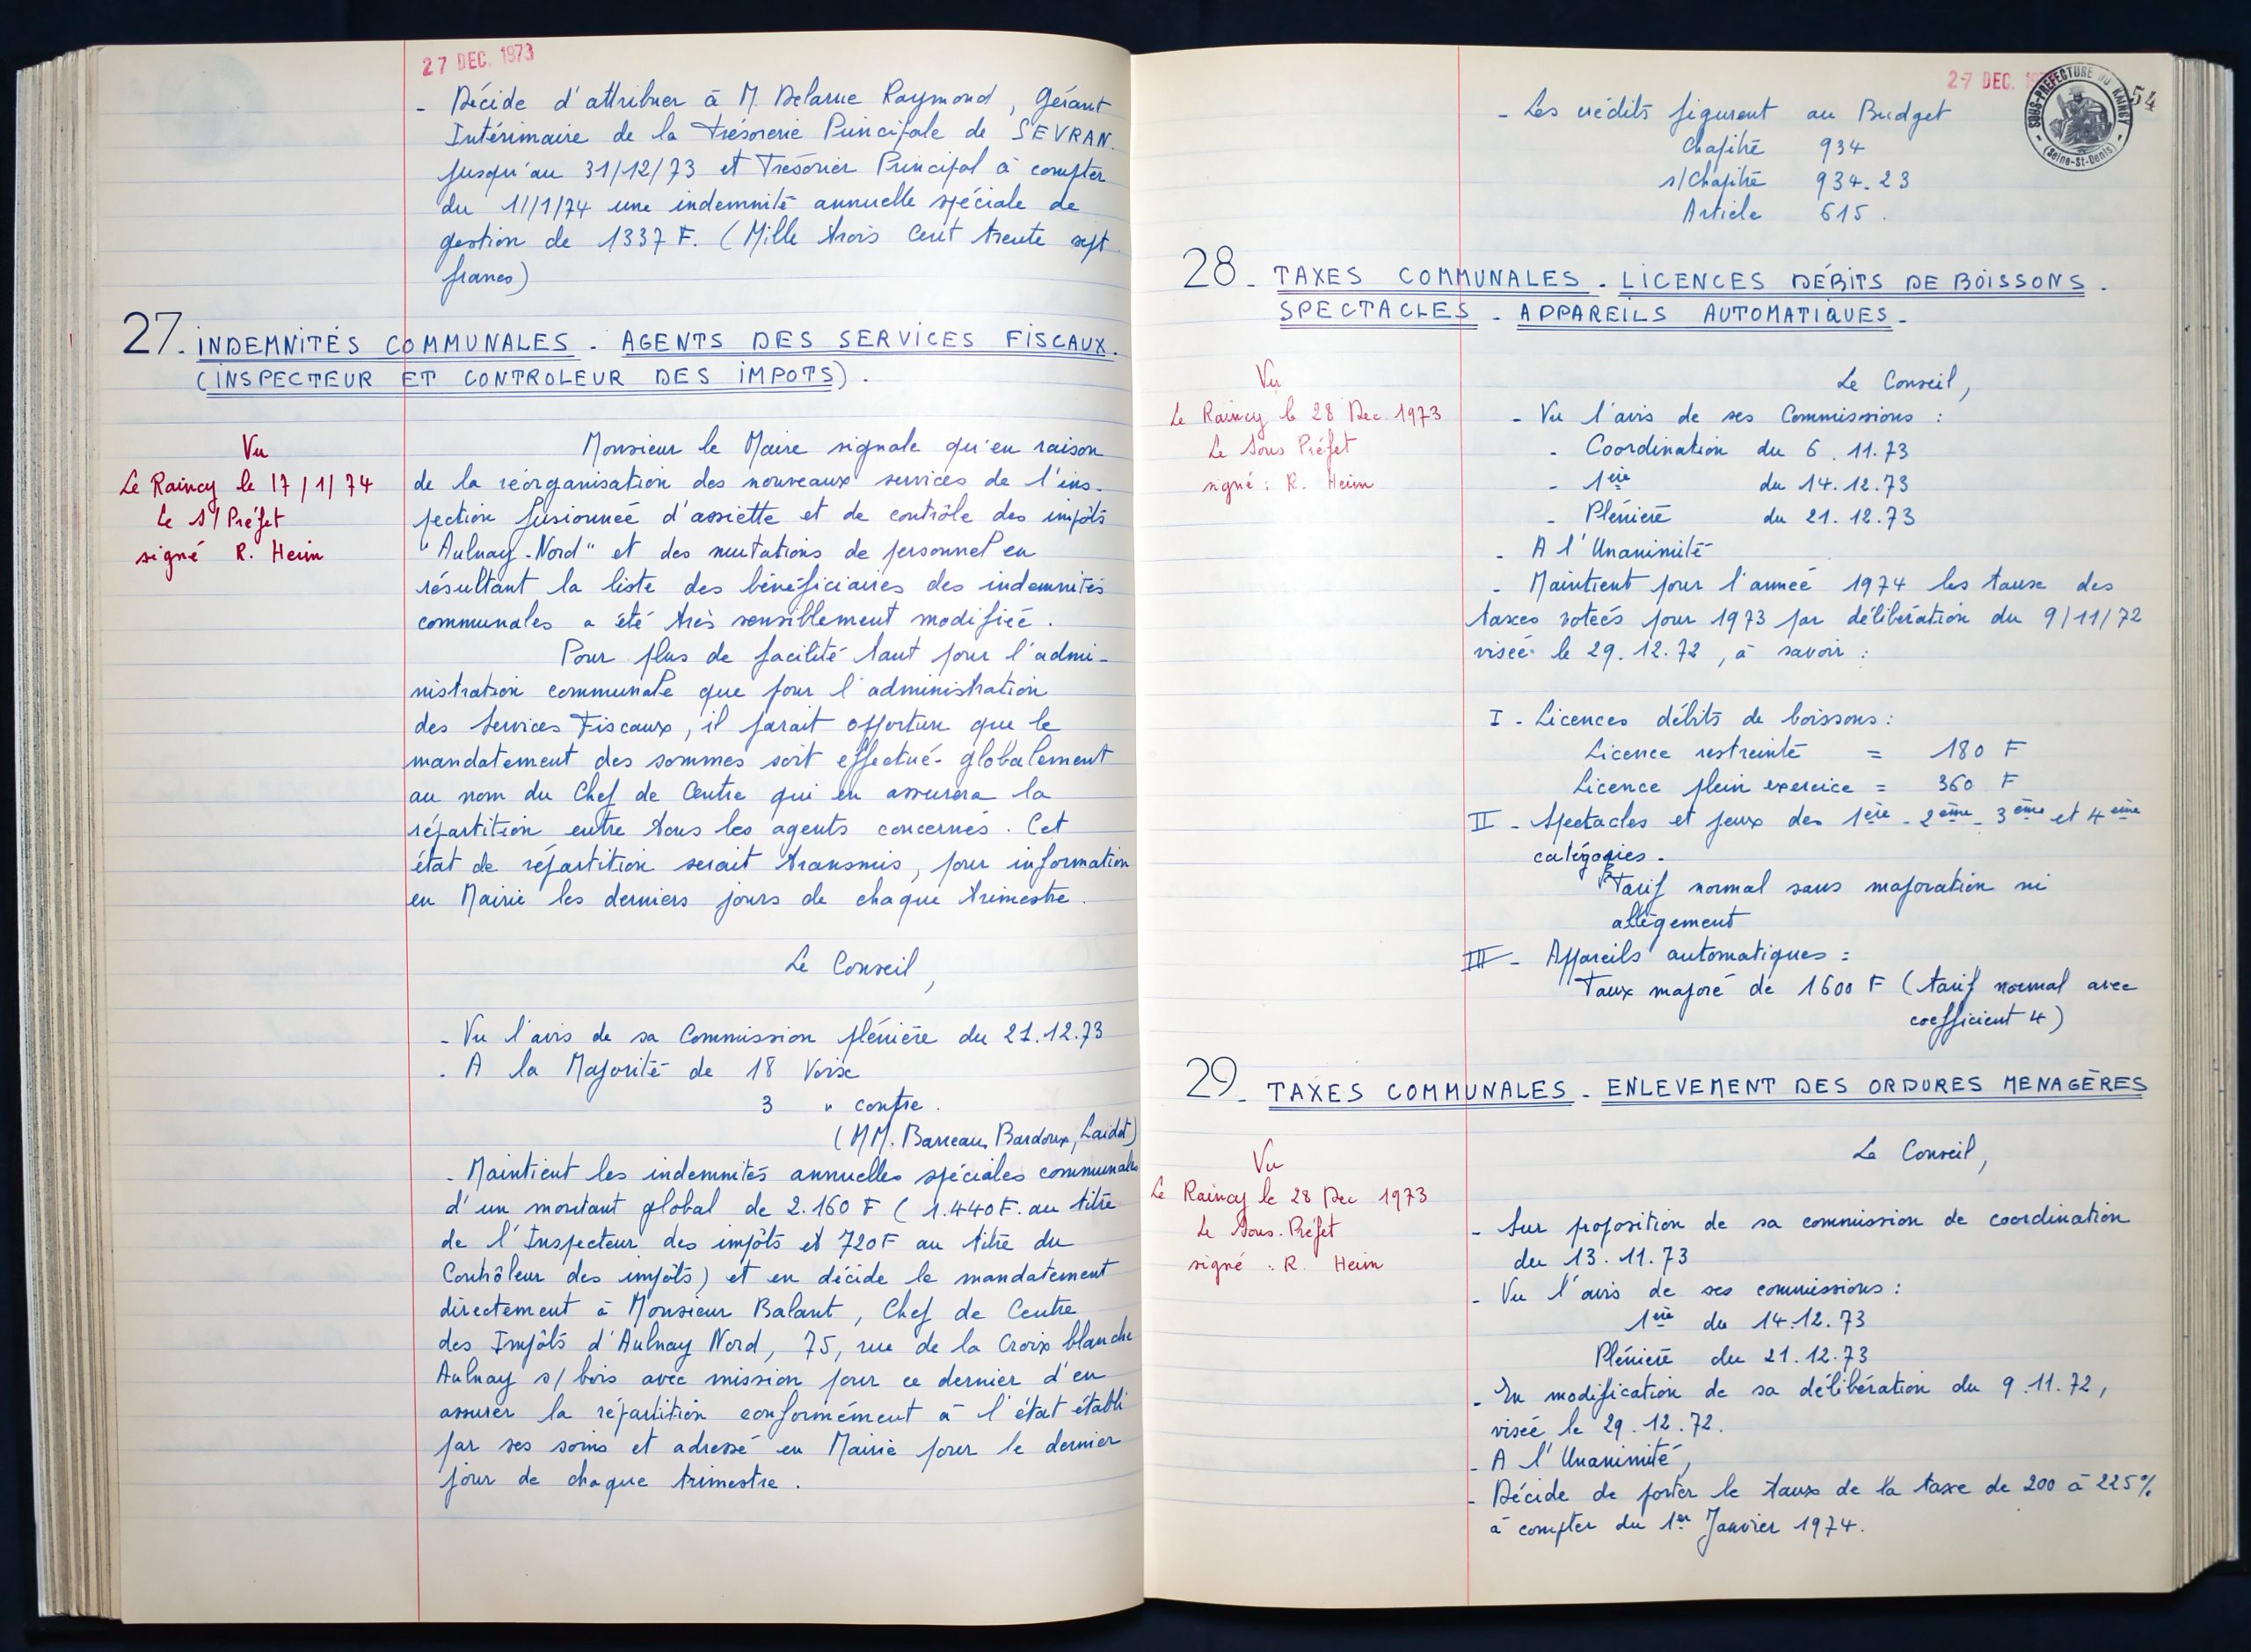 27 DEC. 1973
- Décide d'attribuer à M. Delarue Raymond, Gérant
Intérimaire de la Trésorerie Principale de SEVRAN.
jusqu'au 31/12/73 et Trésorier Principal à compter
du 1/1/74 une indemnité annuelle spéciale de
gestion de 1337 F. (Mille trois cent trente sept
francs)
27. INDEMNITÉS COMMUNALES. AGENTS DES SERVICES FISCAUX.
(INSPECTEUR ET CONTROLEUR DES IMPOTS).
Vu
Le Raincy le 17/1/74
Le S/Préfet
signé R. Heim
Monsieur le Maire signale qu'en raison
de la réorganisation des nouveaux services de l'ins-
pection fusionnée d'assiette et de contrôle des impôts
"Aulnay-Nord" et des mutations de personnel en
résultant la liste des bénéficiaires des indemnités
communales a été très sensiblement modifiée.
Pour plus de facilité tant pour l'admi-
nistration communale que pour l'administration
des Services Fiscaux, il parait opportun que le
mandatement des sommes soit effectué globalement
au nom du Chef de Centre qui en assurera la
répartition entre tous les agents concernés. Cet
état de répartition serait transmis, pour information
en Mairie les derniers jours de chaque trimestre.
Le Conseil,
- Vu l'avis de sa Commission plénière du 21.12.73
- A la Majorité de 18 Voix
3 " contre.
(MM. Barreau, Bardoux, Laidet)
- Maintient les indemnités annuelles spéciales communales
d'un montant global de 2.160 F (1.440 F. au titre
de l'Inspecteur des impôts et 720 F au titre du
Contrôleur des impôts) et en décide le mandatement
directement à Monsieur Balant, Chef de Centre
des Impôts d'Aulnay Nord, 75, rue de la Croix blanche
Aulnay s/bois avec mission pour ce dernier d'en
assurer la répartition conformément à l'état établi
par ses soins et adressé en Mairie pour le dernier
jour de chaque trimestre.
27 DEC. 19
SOUS-PREFECTURE DU RAINCY
(Seine-St-Denis)
54
- Les crédits figurent au Budget
Chapitre 934
s/Chapitre 934.23
Article 615.
28. TAXES COMMUNALES. LICENCES DÉBITS DE BOISSONS.
SPECTACLES. APPAREILS AUTOMATIQUES.
Vu
Le Raincy le 28 Dec. 1973
Le Sous Préfet
signé : R. Heim
Le Conseil,
- Vu l'avis de ses Commissions :
- Coordination du 6.11.73
- 1ère du 14.12.73
- Plénière du 21.12.73
- A l'Unanimité
- Maintient pour l'année 1974 les taux des
taxes votées pour 1973 par délibération du 9/11/72
visée le 29.12.72, à savoir :
I - Licences débits de boissons :
Licence restreinte = 180 F
Licence plein exercice = 360 F
II - Spectacles et jeux des 1ère - 2ème - 3ème et 4ème
catégories.
Tarif normal sans majoration ni
allègement
III - Appareils automatiques :
Taux majoré de 1600 F (tarif normal avec
coefficient 4)
29. TAXES COMMUNALES. ENLEVEMENT DES ORDURES MENAGÈRES
Vu
Le Raincy le 28 Dec 1973
Le Sous-Préfet
signé : R. Heim
Le Conseil,
- Sur proposition de sa commission de coordination
du 13.11.73
- Vu l'avis de ses commissions :
1ère du 14.12.73
Plénière du 21.12.73
- En modification de sa délibération du 9.11.72,
visée le 29.12.72.
- A l'Unanimité,
- Décide de porter le taux de la taxe de 200 à 225%
à compter du 1er Janvier 1974.